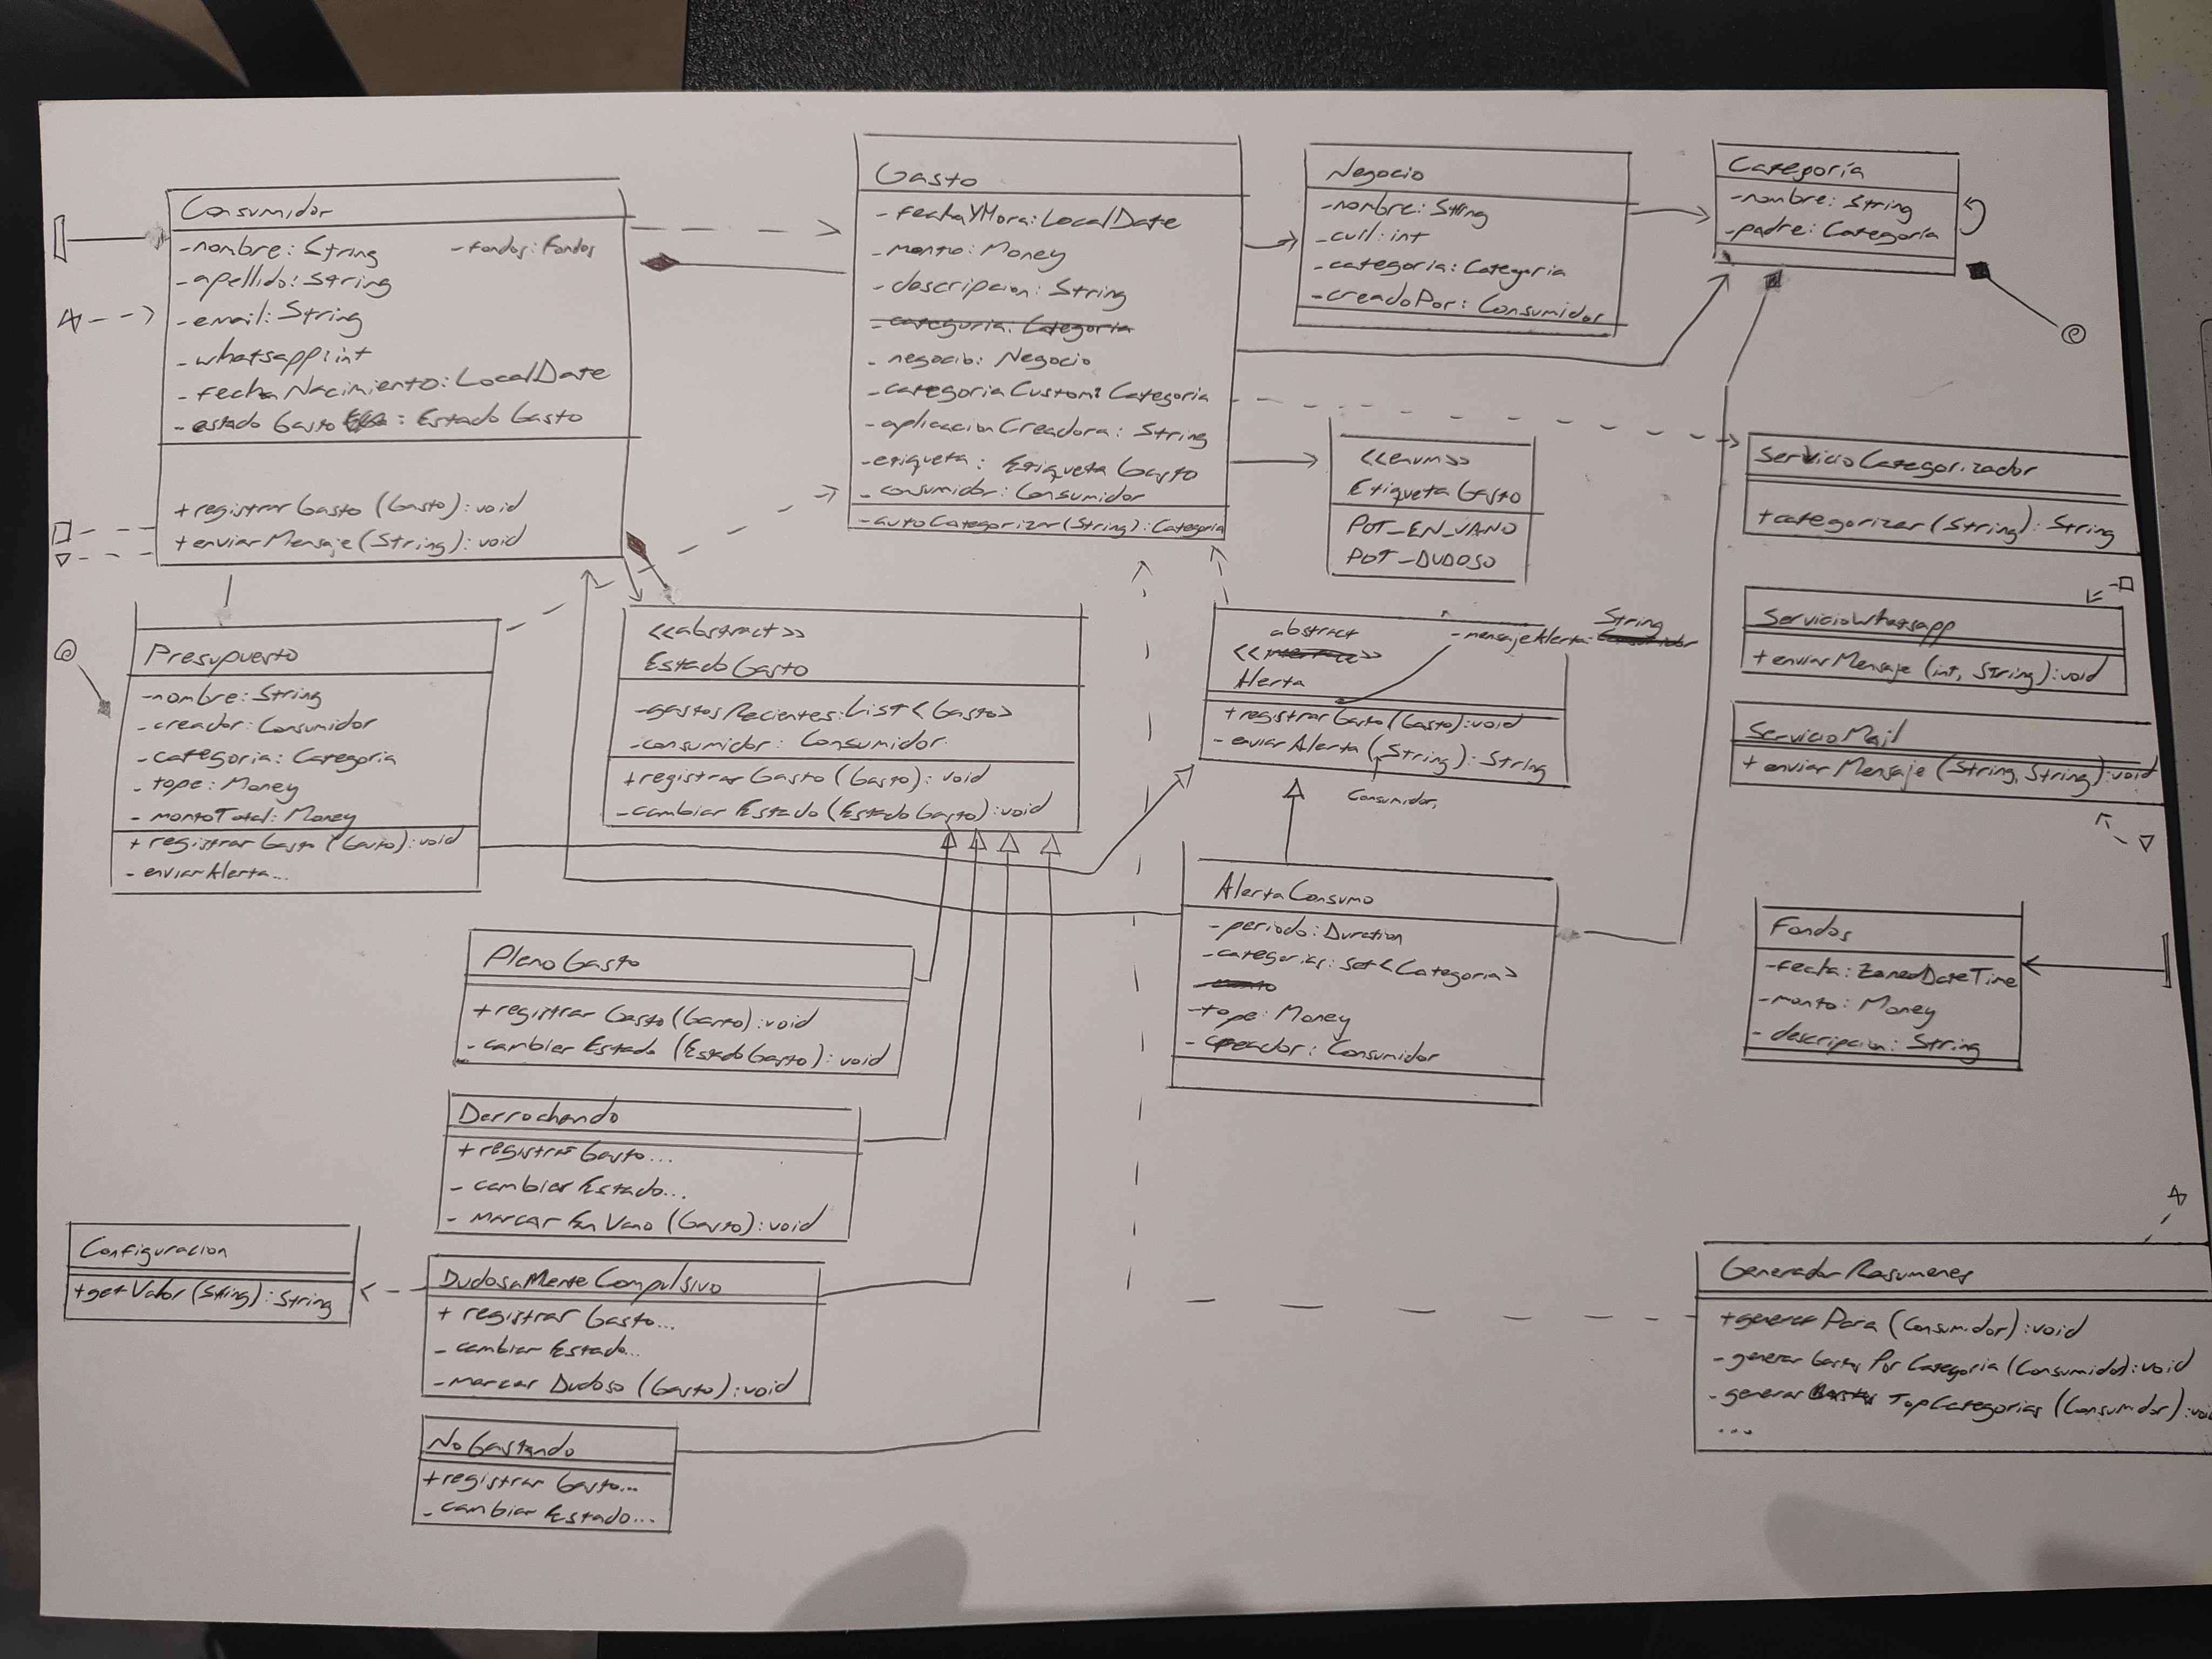 Consumidor
-nombre: String
-fondos: Fondos
-apellido: String
-email: String
-whatsapp: int
-fechaNacimiento: LocalDate
-estadoGasto : EstadoGasto
+registrarGasto (Gasto): void
+enviarMensaje (String): void
Gasto
-fechaYHora: LocalDate
-monto: Money
-descripcion: String
-categoria: Categoria
-negocio: Negocio
-categoriaCustom: Categoria
-aplicacionCreadora: String
-etiqueta: EtiquetaGasto
-consumidor: Consumidor
-autoCategorizar(String): Categoria
Negocio
-nombre: String
-cuil: int
-categoria: Categoria
-creadoPor: Consumidor
Categoría
-nombre: String
-padre: Categoría
<<enum>>
EtiquetaGasto
POT_EN_VANO
POT_DUDOSO
ServicioCategorizador
+categorizar(String): String
ServicioWhatsapp
+enviarMensaje (int, String): void
ServicioMail
+enviarMensaje (String, String): void
Presupuesto
-nombre: String
-creador: Consumidor
-categoria: Categoria
-tope: Money
-montoTotal: Money
+registrarGasto (Gasto): void
-enviarAlerta...
<<abstract>>
EstadoGasto
-gastosRecientes: List<Gasto>
-consumidor: Consumidor
+registrarGasto (Gasto): void
-cambiarEstado (EstadoGasto): void
abstract
<<interface>>
Alerta
String
-mensajeAlerta: Consumidor
+registrarGasto (Gasto): void
-enviarAlerta (String): String
Consumidor,
AlertaConsumo
-periodo: Duration
-categorias: Set<Categoria>
-monto
-tope: Money
-creador: Consumidor
Fondos
-fecha: ZonedDateTime
-monto: Money
-descripcion: String
PlenoGasto
+registrarGasto (Gasto): void
-cambiarEstado (EstadoGasto): void
Derrochando
+registrarGasto...
-cambiarEstado...
-marcarEnVano (Gasto): void
Configuracion
+getValor (String): String
DudosaMenteCompulsivo
+registrarGasto...
-cambiarEstado...
-marcarDudoso (Gasto): void
NoGastando
+registrarGasto...
-cambiarEstado...
GeneradorResumenes
+generarPara (Consumidor): void
-generarGastosPorCategoria (Consumidor): void
-generar TopCategorias (Consumidor): voi
...